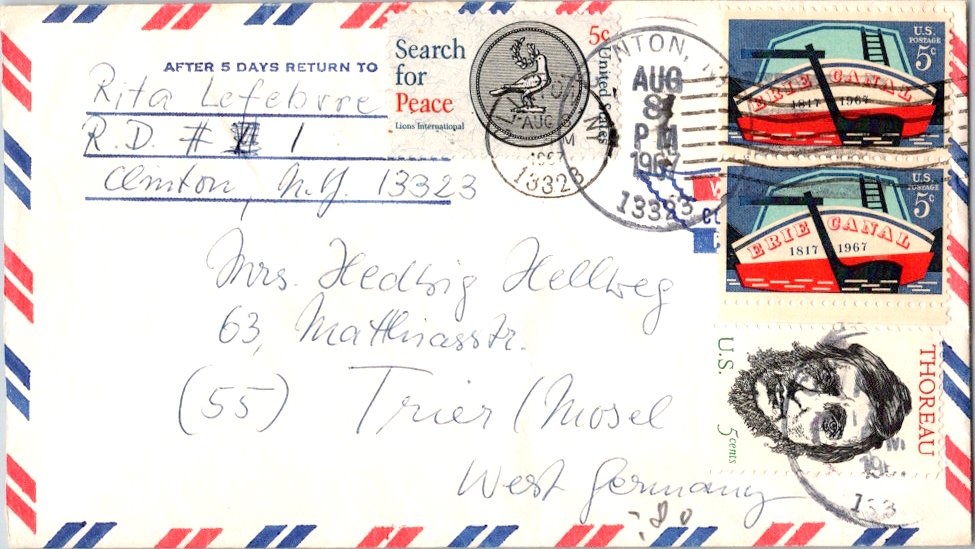 AFTER 5 DAYS RETURN TO
Rita Lefebvre
R.D. # 1
Clinton, N.Y. 13323
Search
for
Peace
Lions International
5c
United States
AUG 8
NY
13323
NTON,
AUG
8
PM
1967
13323
U.S.
POSTAGE
5c
ERIE CANAL
1817 1967
U.S.
POSTAGE
5c
ERIE CANAL
1817 1967
Mrs. Hedwig Hellweg
63, Matthiasstr.
(55) Trier/Mosel
West Germany
THOREAU
U.S.
5 cents
133